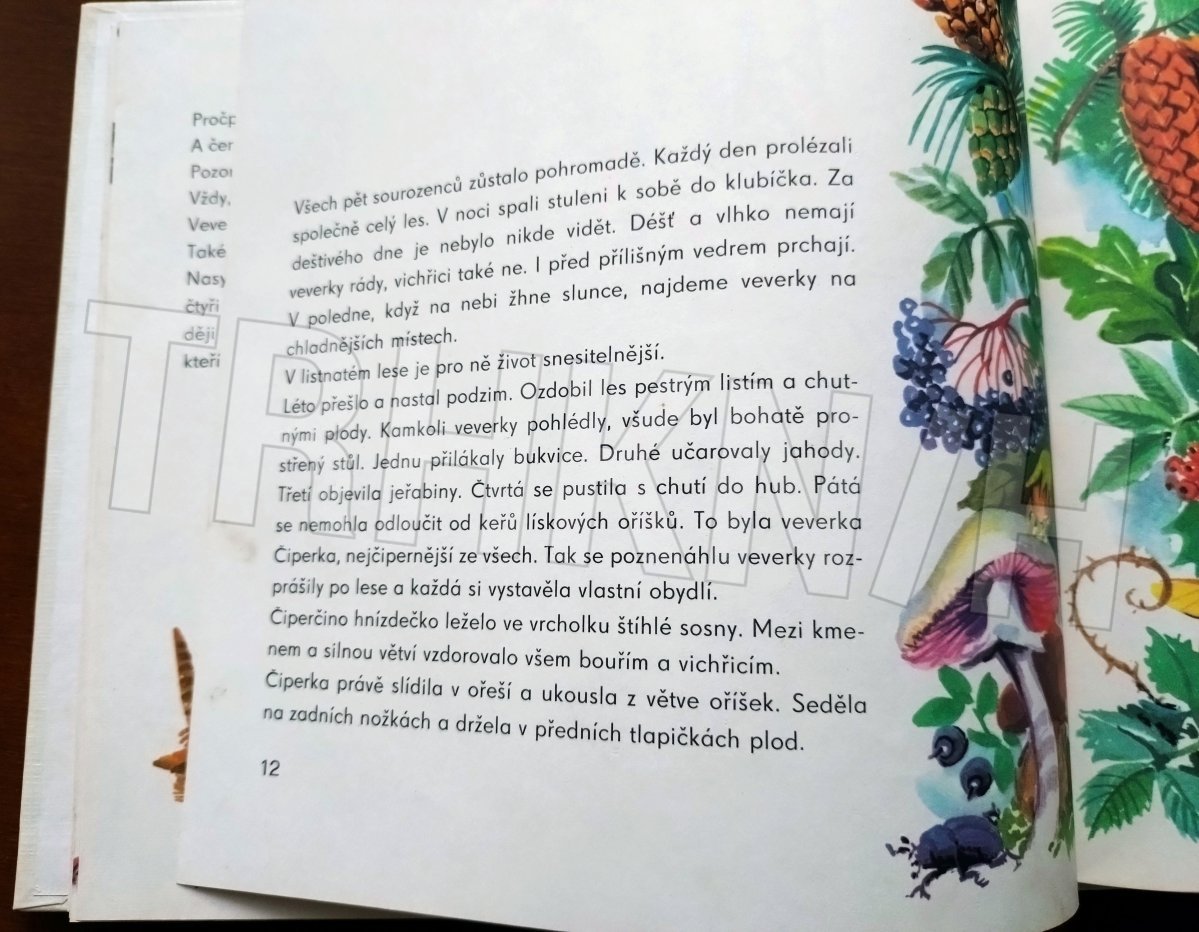 Pročp
A čer
Pozor
Vždy,
Veve
Také
Nasy
čtyři
ději
kteří
Všech pět sourozenců zůstalo pohromadě. Každý den prolézali
společně celý les. V noci spali stuleni k sobě do klubíčka. Za
deštivého dne je nebylo nikde vidět. Déšť a vlhko nemají
veverky rády, vichřici také ne. I před přílišným vedrem prchají.
V poledne, když na nebi žhne slunce, najdeme veverky na
chladnějších místech.
V listnatém lese je pro ně život snesitelnější.
Léto přešlo a nastal podzim. Ozdobil les pestrým listím a chut-
nými plody. Kamkoli veverky pohlédly, všude byl bohatě pro-
střený stůl. Jednu přilákaly bukvice. Druhé učarovaly jahody.
Třetí objevila jeřabiny. Čtvrtá se pustila s chutí do hub. Pátá
se nemohla odloučit od keřů lískových oříšků. To byla veverka
Čiperka, nejčipernější ze všech. Tak se poznenáhlu veverky roz-
prášily po lese a každá si vystavěla vlastní obydlí.
Čiperčino hnízdečko leželo ve vrcholku štíhlé sosny. Mezi kme-
nem a silnou větví vzdorovalo všem bouřím a vichřicím.
Čiperka právě slídila v ořeší a ukousla z větve oříšek. Seděla
na zadních nožkách a držela v předních tlapičkách plod.
12